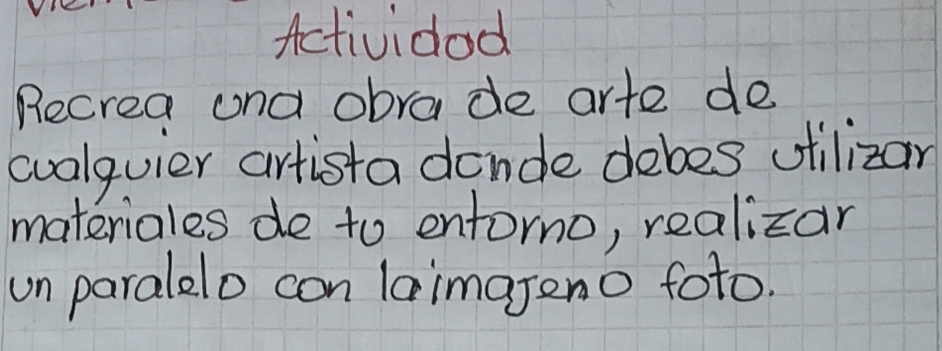 Actividad
Recrea una obra de arte de
cualquier artista donde debes utilizar
materiales de tu entorno, realizar
un paralelo con la imagen o foto.